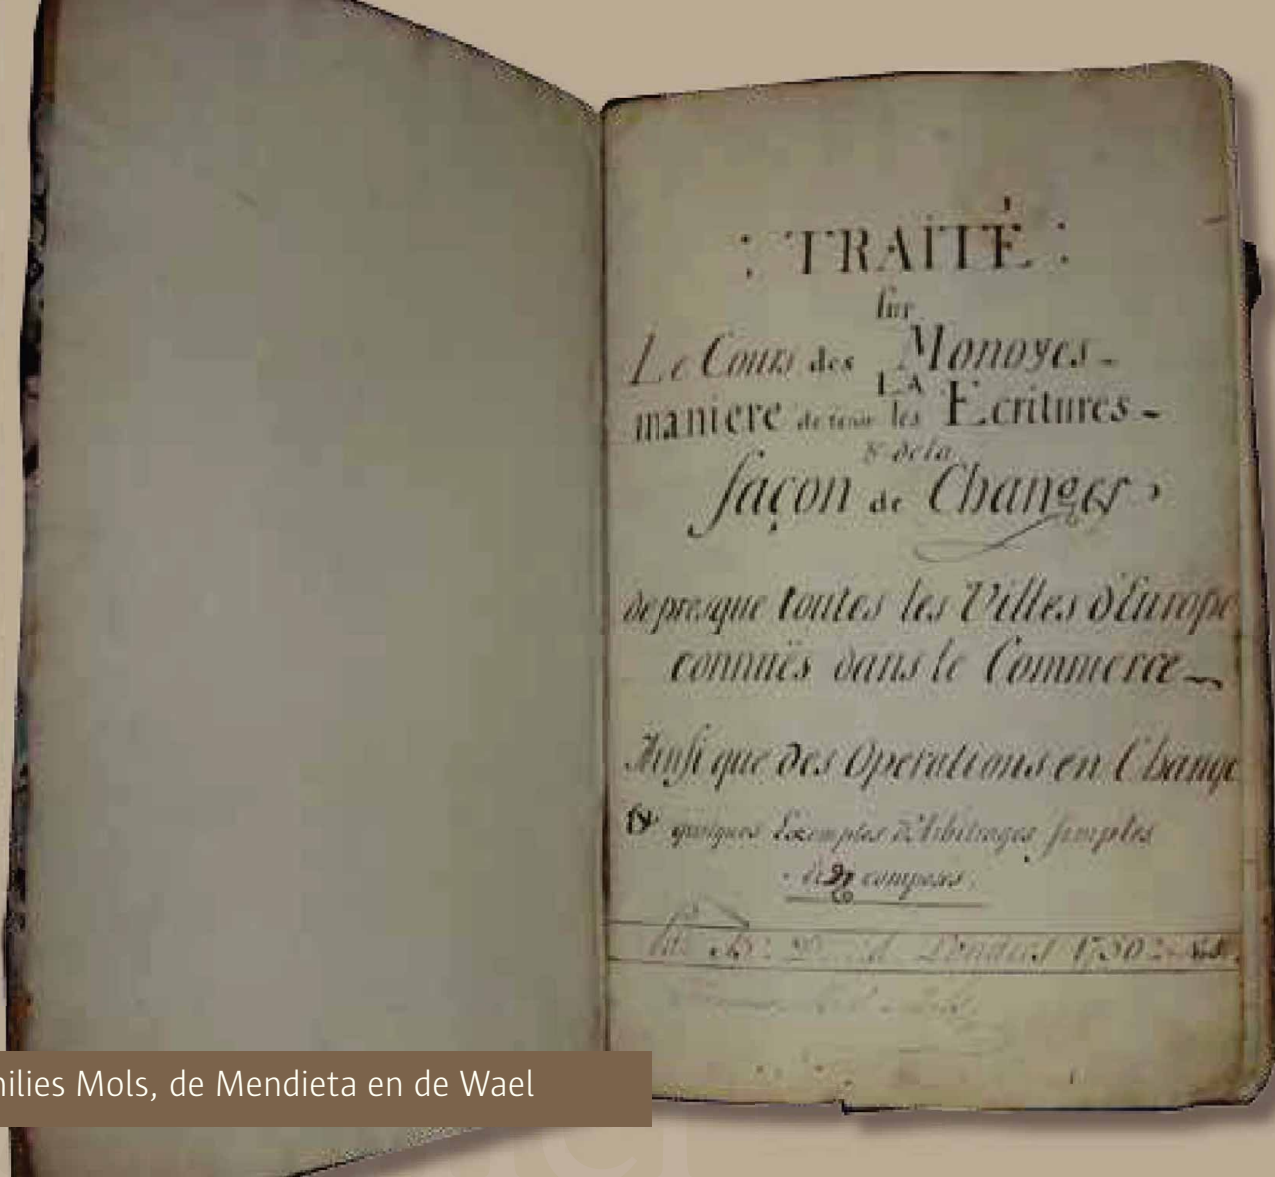 : TRAITÉ :
sur
Le Cours des Monoyes -
LA
maniere de tenir les Ecritures -
& de la
façon de Changer,
de presque toutes les Villes d'Europe
connuës dans le Commerce
Ainsi que des Operations en Change
& quelques Exemples d'Arbitrages simples
& composés.
Londres 1780
milies Mols, de Mendieta en de Wael